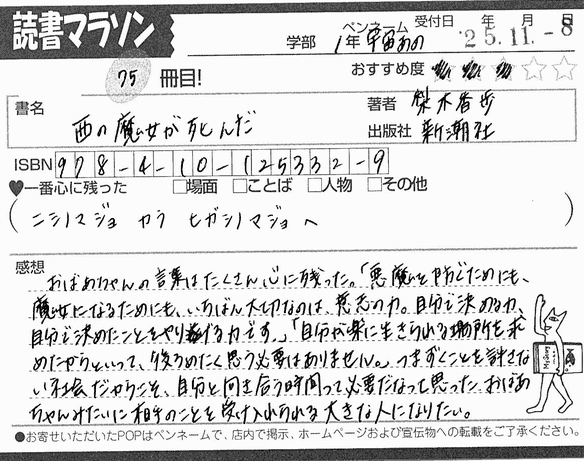 読書マラソン
学部 1年 ペンネーム 宇宙あの 受付日 年 月 日
'25.11.-8
75冊目! おすすめ度 ★★★☆☆
書名 西の魔女が死んだ
著者 梨木香歩
出版社 新潮社
ISBN 978-4-10-125332-9
♥一番心に残った □場面 □ことば □人物 □その他
(ニシノマジョ カラ ヒガシノマジョ ヘ)
感想
おばあちゃんの言葉はたくさん心に残った。「悪魔を防ぐためにも、
魔女になるためにも、いちばん大切なのは、意志の力。自分で決める力、
自分で決めたことをやり遂げる力です。」「自分が楽に生きられる場所を求
めたからといって、後ろめたく思う必要はありません。」つまずくことを許さな
い社会だからこそ、自分と向き合う時間って必要だなって思った。おばあ
ちゃんみたいに相手のことを受け入れられる大きな人になりたい。
●お寄せいただいたPOPはペンネームで、店内で掲示、ホームページおよび宣伝物への転載をご了承ください。